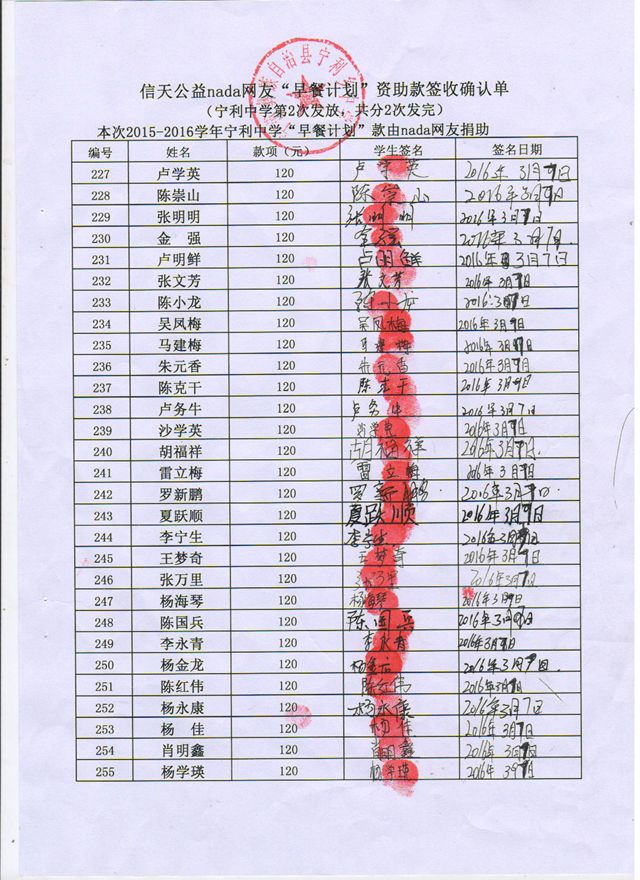 信天公益nada网友“早餐计划”资助款签收确认单
(宁利中学第2次发放，共分2次发完)
本次2015-2016学年宁利中学“早餐计划”款由nada网友捐助
编号 姓名 款项(元) 学生签名 签名日期
227 卢学英 120 卢学英 2016年3月9日
228 陈崇山 120 陈崇山 2016年3月9日
229 张明明 120 张明明 2016年3月9日
230 金 强 120 金强 2016年3月7日
231 卢明鲜 120 卢明鲜 2016年3月7日
232 张文芳 120 张文芳 2016年3月9日
233 陈小龙 120 陈小龙 2016年3月
234 吴凤梅 120 吴凤梅 2016年3月9日
235 马建梅 120 马建梅 2016年3月9日
236 朱元香 120 朱元香 2016年3月9日
237 陈克干 120 陈克干 2016年3月9日
238 卢务牛 120 卢务牛 2016年3月7日
239 沙学英 120 沙学英 2016年3月9日
240 胡福祥 120 胡福祥 2016年3月
241 雷立梅 120 雷立梅 2016年3月9日
242 罗新鹏 120 罗新鹏 2016年3月9日
243 夏跃顺 120 夏跃顺 2016年3月9日
244 李宁生 120 李宁生 2016年3月9日
245 王梦奇 120 王梦奇 2016年3月9日
246 张万里 120 张万里 2016年3月
247 杨海琴 120 杨海琴 2016年3月9日
248 陈国兵 120 陈国兵 2016年3月9日
249 李永青 120 李永青 2016年3月9日
250 杨金龙 120 杨金龙 2016年3月7日
251 陈红伟 120 陈红伟 2016年3月9日
252 杨永康 120 杨永康 2016年3月7日
253 杨 佳 120 杨佳 2016年3月9日
254 肖明鑫 120 肖明鑫 2016年3月9日
255 杨学瑛 120 杨学瑛 2016年3月9日